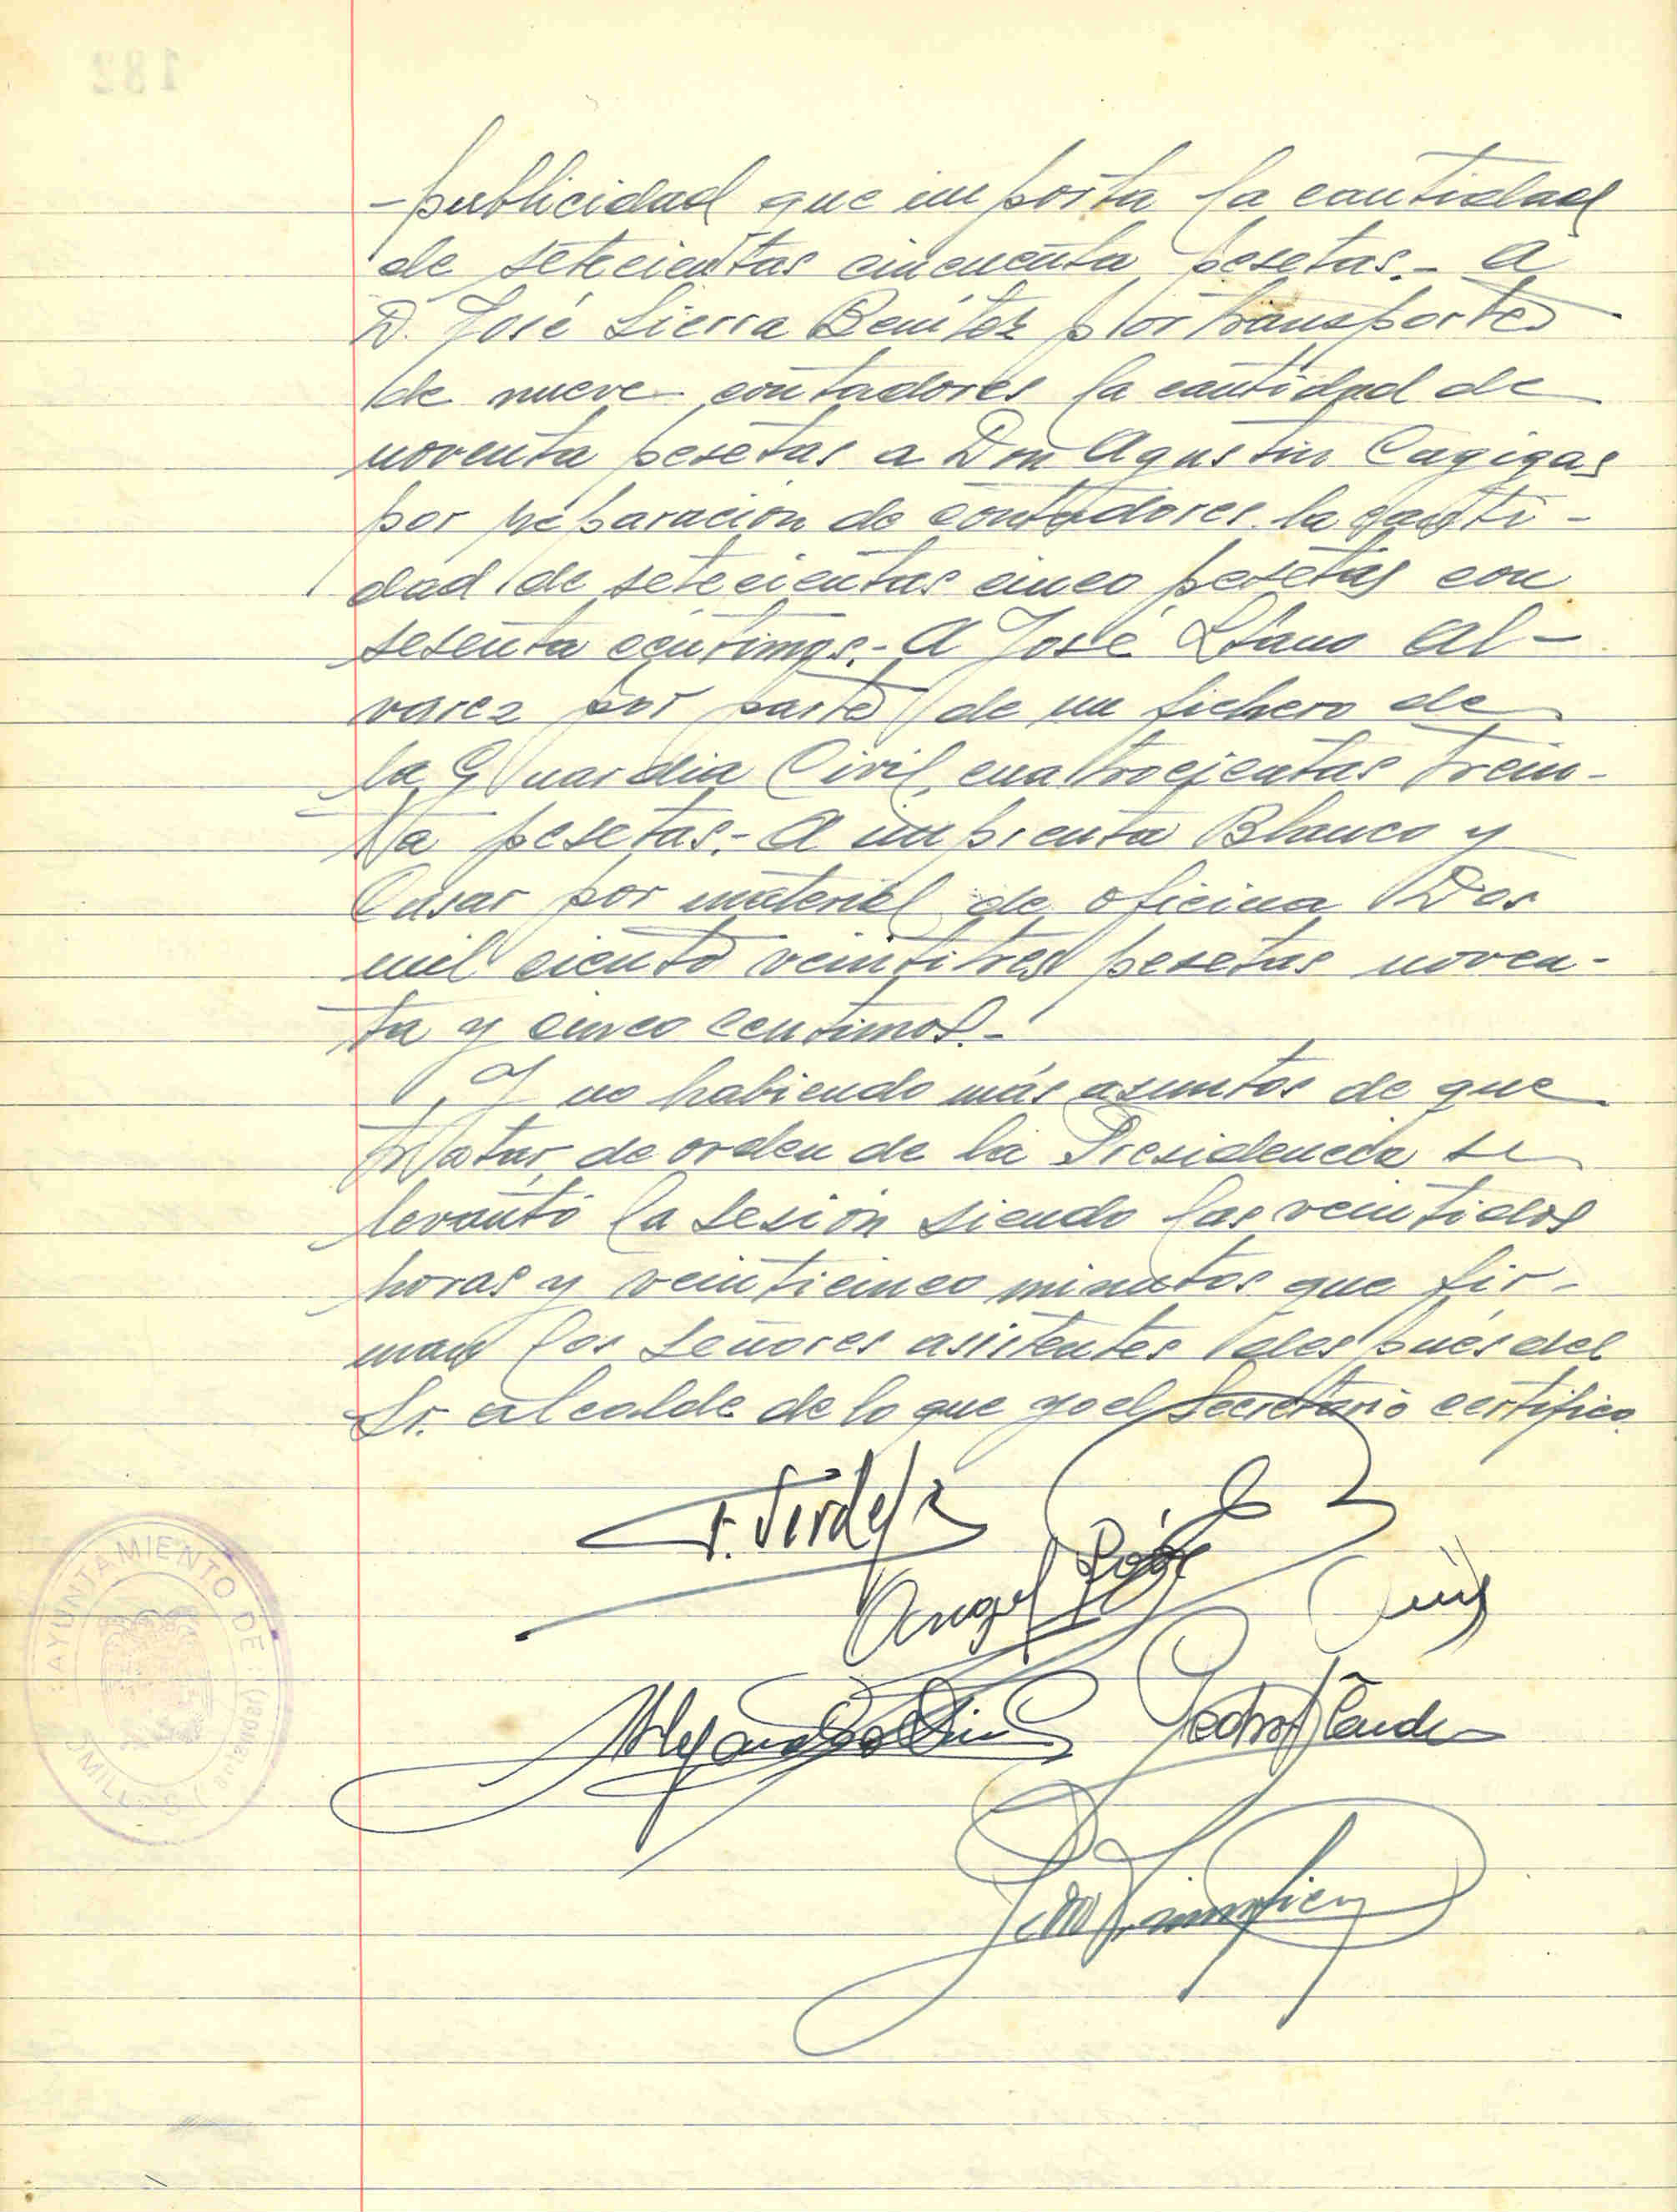 -publicidad que importa la cantidad
de setecientas cincuenta pesetas.- A
D. José Sierra Benítez por transporte
de nueve contadores la cantidad de
noventa pesetas a Don Agustin Cagigas
por reparación de contadores la canti-
dad de setecientas cinco pesetas con
sesenta centimos.- A José Llano Al-
varez por parte de un fichero de
la Guardia Civil, cuatrocientas trein-
ta pesetas.- A imprenta Blanco y
por material de oficina Dos
mil ciento veintitres pesetas noven-
ta y cinco centimos.-
Y no habiendo más asuntos de que
tratar, de orden de la Presidencia se
levantó la sesión siendo las veintidos
horas y veinticinco minutos que fir-
man los señores asistentes después del
Sr. Alcalde de lo que yo el Secretario certifico.
Angel
Pedro
AYUNTAMIENTO DE
182